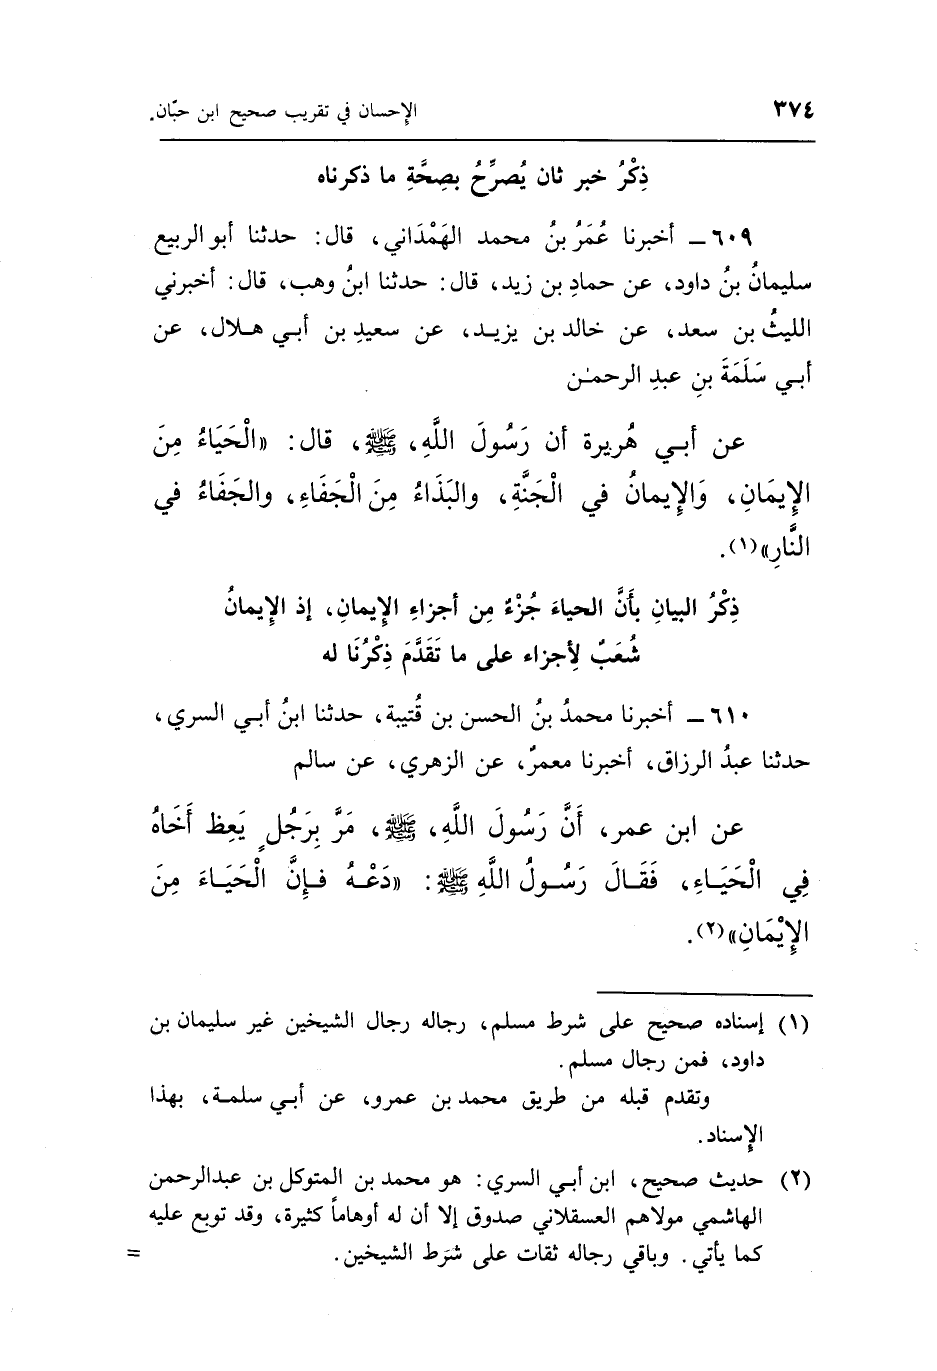 ٣٧٤
الإحسان في تقريب صحيح ابن حبّان.
ذِكْرُ خبر ثان يُصرِّحُ بصِحَّةِ ما ذكرناه
٦٠٩ ــ أخبرنا عُمَرُ بنُ محمد الهَمْدَاني، قال: حدثنا أبو الربيع
سليمانُ بنُ داود، عن حمادِ بن زيد، قال: حدثنا ابنُ وهب، قال: أخبرني
الليثُ بن سعد، عن خالد بن يزيد، عن سعيدِ بن أبي هلال، عن
أبي سَلَمَةَ بنِ عبدِ الرحمـٰن
عن أبي هُريرة أن رَسُولَ اللَّهِ، ﷺ، قال: «الْحَيَاءُ مِنَ
الإِيمَانِ، وَالإِيمانُ في الْجَنَّةِ، والبَذَاءُ مِنَ الْجَفَاءِ، والجَفَاءُ في
النَّارِ»(١).
ذِكْرُ البيانِ بأَنَّ الحياءَ جُزْءٌ مِن أجزاءِ الإِيمانِ، إذ الإِيمانُ
شُعَبٌ لِأجزاء على ما تَقَدَّمَ ذِكْرُنَا له
٦١٠ ــ أخبرنا محمدُ بنُ الحسن بن قُتيبة، حدثنا ابنُ أبي السري،
حدثنا عبدُ الرزاق، أخبرنا معمرٌ، عن الزهري، عن سالم
عن ابن عمر، أَنَّ رَسُولَ اللَّهِ، ﷺ، مَرَّ بِرَجُلٍ يَعِظ أَخَاهُ
فِي الْحَيَاءِ، فَقَالَ رَسُولُ اللَّهِ ﷺ: «دَعْهُ فإِنَّ الْحَيَاءَ مِنَ
الإِيْمَانِ»(٢).
(١) إسناده صحيح على شرط مسلم، رجاله رجال الشيخين غير سليمان بن
داود، فمن رجال مسلم.
وتقدم قبله من طريق محمد بن عمرو، عن أبي سلمة، بهذا
الإسناد.
(٢) حديث صحيح، ابن أبي السري: هو محمد بن المتوكل بن عبدالرحمن
الهاشمي مولاهم العسقلاني صدوق إلا أن له أوهاماً كثيرة، وقد توبع عليه
كما يأتي. وباقي رجاله ثقات على شَرَط الشيخين.
=